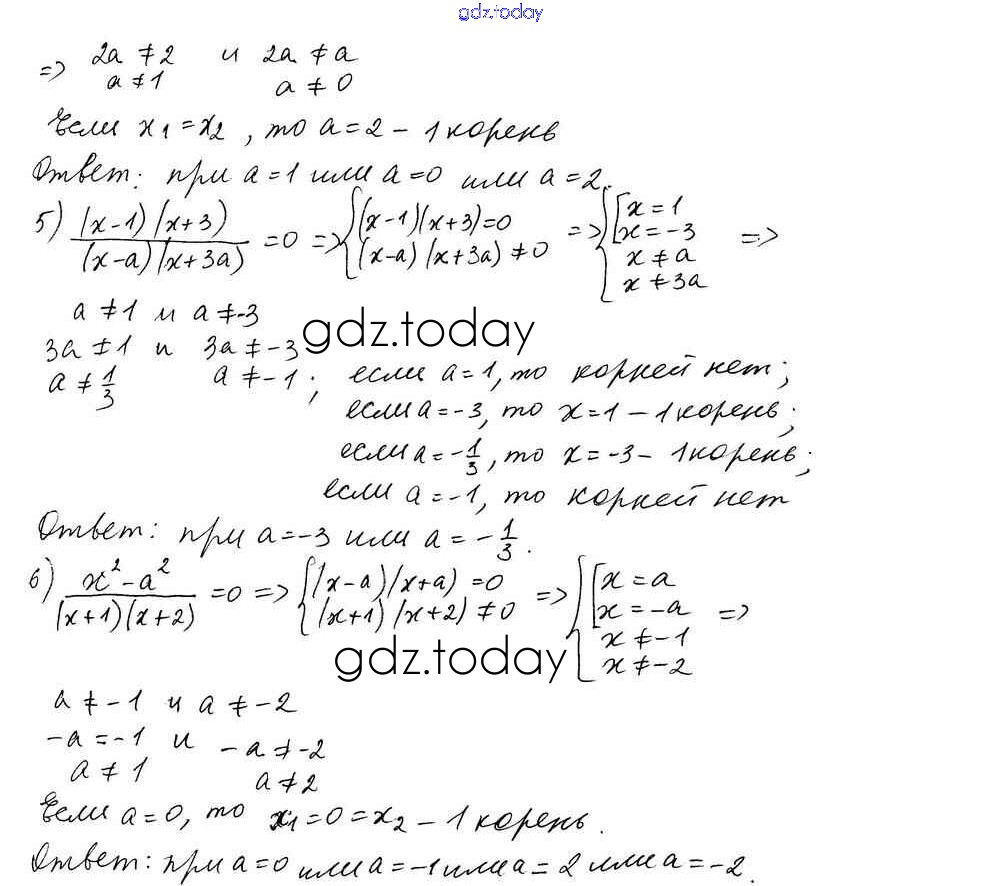 gdz.today
=> 2a ≠ 2 и 2a ≠ a
a ≠ 1 a ≠ 0
Если x₁ = x₂, то a = 2 – 1 корень
Ответ: при a = 1 или a = 0 или a = 2.
5) (x-1)(x+3)/(x-a)(x+3a) = 0 => {(x-1)(x+3) = 0 (x-a)(x+3a) ≠ 0 => {[x = 1 x = -3 x ≠ a x ≠ 3a =>
a ≠ 1 и a ≠ -3
gdz.today
3a ≠ 1 и 3a ≠ -3
a ≠ 1/3 a ≠ -1; если a = 1, то корней нет;
если a = -3, то x = 1 – 1 корень;
если a = -1/3, то x = -3 – 1 корень;
если a = -1, то корней нет
Ответ: при a = -3 или a = -1/3.
6) x² - a²/(x+1)(x+2) = 0 => {(x-a)(x+a) = 0 (x+1)(x+2) ≠ 0 => {[x = a x = -a x ≠ -1 x ≠ -2 =>
gdz.today
a ≠ -1 и a ≠ -2
-a = -1 и -a ≠ -2
a ≠ 1 a ≠ 2
Если a = 0, то x₁ = 0 = x₂ – 1 корень.
Ответ: при a = 0 или a = -1 или a = 2 или a = -2.